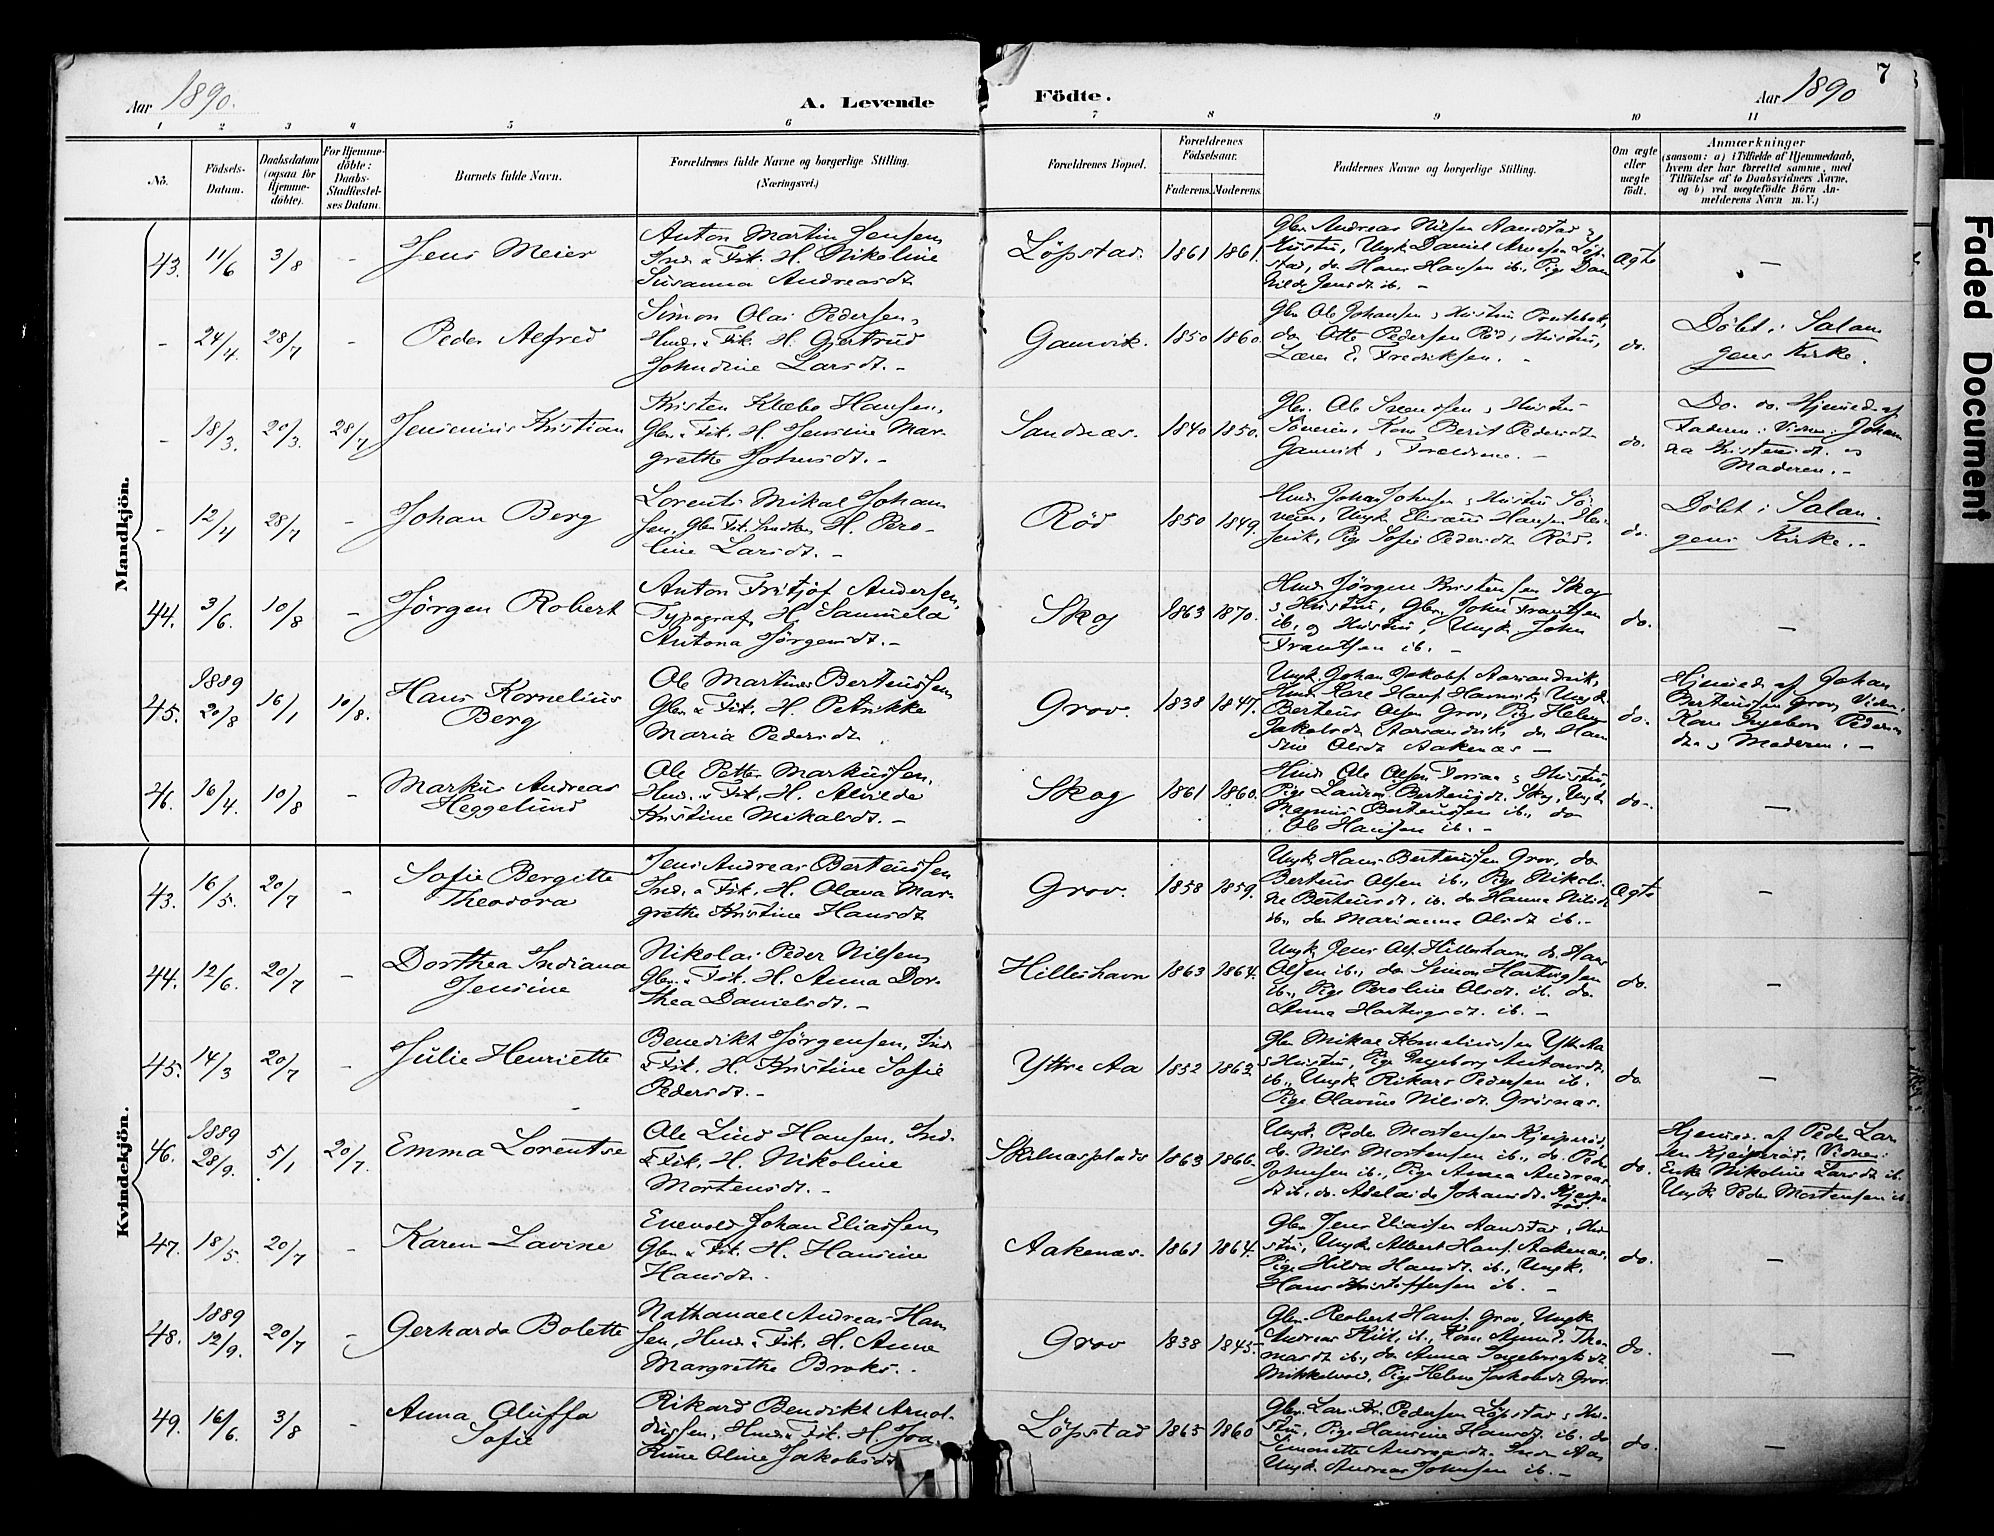 Aar 1890.
A. Levende
Födte.
Aar 1890
7
1 2 3 4 5 6 7 8 9 10 11
No.
Födsels-
Datum.
Daabsdatum
(ogsaa for
Hjemme-
döbte).
For Hjemme-
döbte:
Daabs-
Stadfæstel-
ses Datum.
Barnets fulde Navn.
Forældrenes fulde Navne og borgerlige Stilling.
(Næringsvei.)
Forældrenes Bopæl.
Forældrenes
Födselsaar.
Faderens.
Moderens.
Faddernes Navne og borgerlige Stilling.
Om ægte
eller
uægte
födt.
Anmærkninger
(saasom: a) i Tilfælde af Hjemmedaab,
hvem der har forrettet samme, med
Tilföielse af to Daabsvidners Navne,
og b) ved uegtefödte Börn An-
melderens Navn m. V.)
Mandkjön.
43. 11/6 3/8 -
Jens Meier
Anton Martin Jensen,
Ind. & Fisk. H. Nikoline
Susanna Andreasdt.
Löpstad. 1861 1861.
Gbr. Andreas Nilsen Aandstad &
Hustru, Ungk. Daniel
do. Hans Hansen ib., Pige
Jensdt. ib. -
Ægte
-
- 24/4. 28/7 -
Peder Alfred
Simon Olai Pedersen,
Husm. & Fisk. H. Gjertrud
Johndine Larsdt. -
Gamvik. 1850 1860.
Gbr. Ole Johansen & Hustru
do. Otto Pedersen Röd & Hustru,
Lærer E. Fredriksen. -
do.
Döbt i Salan
gens Kirke.
- 18/3. 20/3. 28/7
Jensinius Kristian
Kristen Klæbo Hansen,
Gbr. & Fisk. H. Jensine Mar-
grethe Johnsdt. -
Sandnæs. 1840 1850.
Gbr. Ole & Hustru
Kone Berit Pedersdt.
Gamvik & Forældrene. -
do.
Do. do. Hjemmed. af
Faderen. Vidner: Johan
na Kristensdt. og
Moderen. -
- 12/4 28/7 -
Johan Berg
Lorents Mikal Johan
sen, Gbr. Fisk. H. Pero-
line Larsdt. -
Röd 1850 1849.
Husm. Johan Johnsen & Hustru
Ungk. Hansen
Pige Sofie Pedersdt. Röd.
do.
Döbt i Salan.
gens Kirke. -
44. 3/6. 10/8 -
Jörgen Robert
Anton Fritjof Andersen,
Typograf, H. Samuela
Antona Jörgensdt. -
Skog 1863 1870.
Husm. Jörgen Kristensen Skog
& Hustru, Gbr. John Frantsen
ib. og Hustru, Ungk. John
Frantsen ib. -
do.
-
45. 1889 20/8 16/1 10/8.
Hans Kornelius
Berg
Ole Martinus Berteussen,
Gbr. & Fisk. H. Petrikke
Maria Pedersdt.
Grov. 1838 1847.
Ungk. Johan Jakobs. Aarsandvik,
Husm. Kare Hans. Ungk.
Berteus Olsen Grov, Pige Helene
Jakobsdt. Aarsandvik, do. Han
sine Olsdt. Aakenæs -
do.
Hjemmed. af Johan
Berteussen Grov, Vidn.
Kone Ingebor Peders
dt. & Moderen. -
46. 16/4. 10/8 -
Markus Andreas
Heggelund
Ole Petter Markussen,
Husm. & Fisk. H. Alvilde
Kristine Mikalsdt. -
Skog 1861 1860.
Husm. Ole Olsen & Hustru,
Pige Laura Berteusdt. Skog, Ungk.
Magnus Berteussen ib., do
Ole Hansen ib. -
do.
-
Kvindekjön.
43. 16/5. 20/7 -
Sofie Bergitte
Theodora
Jens Andreas Berteussen
Ind. & Fisk. H. Olava Mar-
grethe Kristine Hansdt
Grov. 1858 1859.
Ungk. Hans Berteussen Grov, do
Berteus Olsen ib., Pige Nikoli-
ne Berteusdt. ib. do Hanna Nilsdt
ib., do Marianna Olsdt ib. -
Ægte
-
44. 12/6. 20/7 -
Dorthea Indiana
Jensine
Nikolai Peder Nilsen,
Gbr. & Fisk. H. Anna Dor-
thea Danielsdt. -
Hilleshavn 1863 1864.
Ungk. Jens Ols. Hilleshavn, do. Hans
Olsen ib., do Simon Hartvigsen
ib., Pige Peroline Olsdt. ib. do.
Anna Hartvigsdt. ib. -
do.
-
45. 14/3 20/7 -
Julie Henriette
Benedikt Jörgensen, Ind
& Fisk. H. Kristine Sofie
Pedersdt. -
Yttre Aa 1852 1863.
Gbr. Mikal Korneliussen Ytt. Aa
& Hustru, Pige Ingeborg Antonsdt.
ib., Ungk. Rikard Pedersen ib.
Pige Olavine Nilsdt. Grösnæs.
do
-
46. 1889 28/9. 5/1 20/7.
Emma Lorentse
Ole Lind Hansen, Ind.
& Fisk. H. Nikoline
Mortensdt. -
1863 1866.
Ungk. Peder Mortensen
do. Nils Mortensen ib., do. Peder
Johnsen ib., Pige Anna Andreas
dt. ib, do. Adelaide Johansdt.
do.
Hjemmed. af Peder Lar
sen Vidner:
Enke Nikoline Larsdt. ib.
Ungk. Peder Mortensen ib.
47. 18/5. 20/7 -
Karen Lavine
Enevold Johan Eliassen,
Gbr. & Fisk. H. Hansine
Hansdt.
Aakenæs. 1861 1864.
Gbr. Jens Eliassen Aandstad, Hu-
stru, Ungk. Albert Hans. Aakenæs,
Pige Hilda Hansdt. ib., Ungk.
Hans Kristoffersen ib. -
do.
-
48. 1889 12/9. 20/7 -
Gerharda Bolette
Nathanael Andreas Han
sen, Husm. & Fisk. H. Anne
Margrethe Broks. -
Grov 1838 1845.
Gbr. Reobert Hans. Grov, Ungk.
Andreas ib., Kone
ib., do Anna Ingebrigtsdt.
Pige Helene Jakobsdt. Grov.
do.
-
49. 16/6. 3/8 -
Anna Oluffa
Sofie
Rikard Bendikt Arnol-
dussen, Husm. & Fisk. H. Joa-
kime Oline Jakobsdt.
Löpstad 1865 1860
Gbr. Lars Kr. Pedersen Löpstad & Hu-
stru, Pige Hansine Hansdt. ib. do
Simonette Andreasdt.
Ungk. Andreas Johnsen ib. -
do.
-
Faded Document